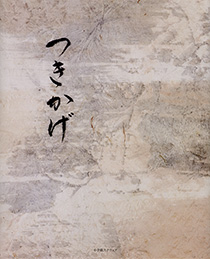 つきかげ